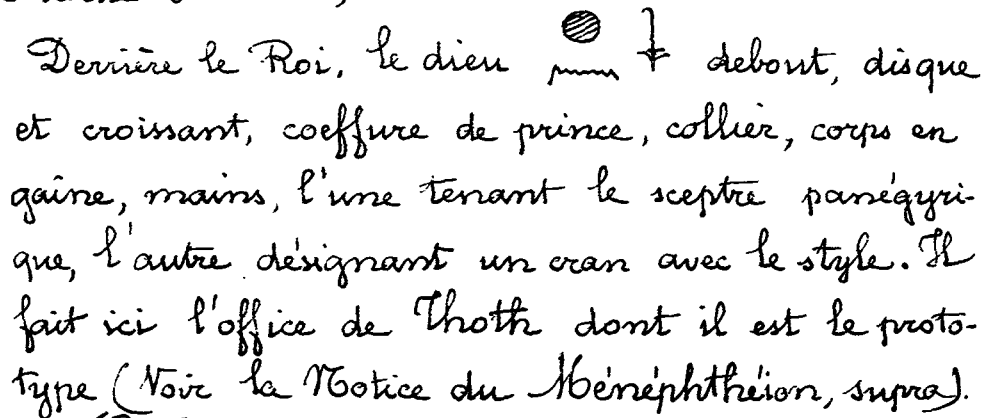 Derrière le Roi, le dieu 𓐍𓈖𓇓 debout, disque
et croissant, coeffure de prince, collier, corps en
gaîne, mains, l'une tenant le sceptre panégyri-
que, l'autre désignant un cran avec le style. Il
fait ici l'office de Thoth dont il est le proto-
type (Voir la Notice du Ménéphthéion, supra).